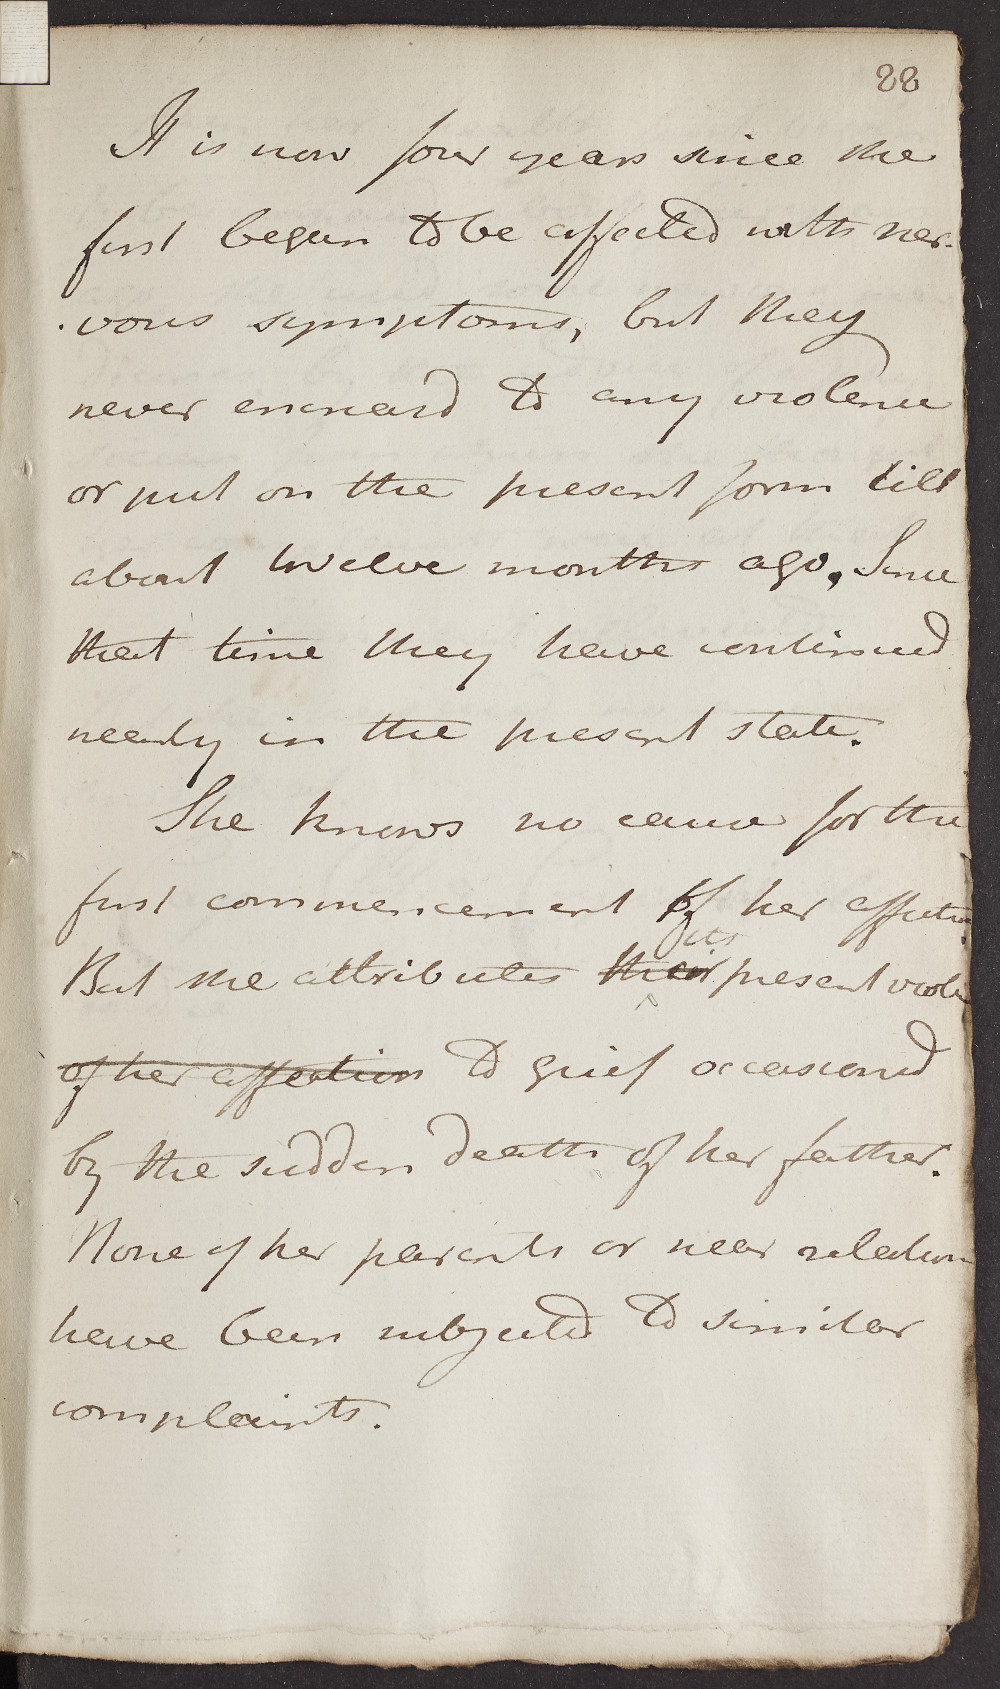 88
It is now four years since she
first began to be affected with ner-
-vous symptoms, but they
never encreas'd to any violence
or put on the present form till
about twelve months ago. Since
that time they have continued
nearly in the present state.
She knows no cause for the
first commencement of her affection.
its
But she attributes their present viole
of her affection to grief occasioned
by the sudden death of her father.
None of her parents or near relation
have been subjected to similar
complaints.